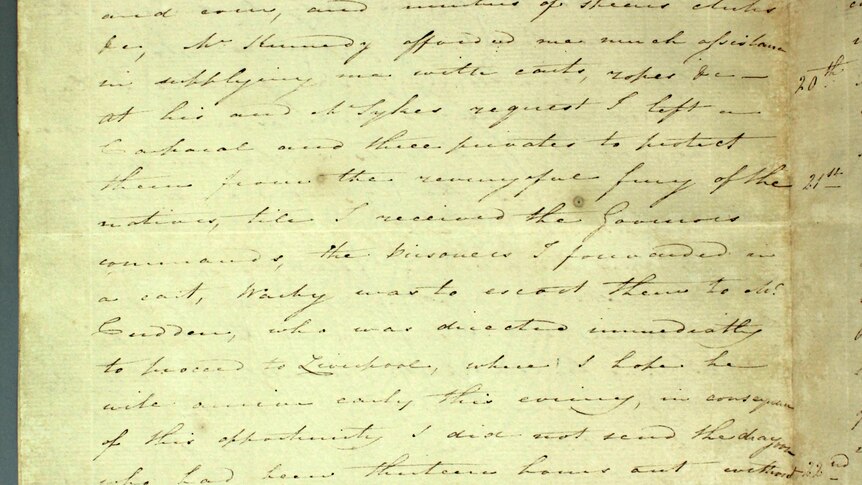 and corn, and number of spears clubs
&c, Mr Kennedy afforded me much assistance
in supplying me with carts, ropes &c —
at his and Mr Sykes request I left a
Corporal and three privates to protect
them from the revengeful fury of the
natives, till I received the Governors
commands, the Prisoners I forwarded in
a cart, Warby was to escort them to Mr
Cudden, who was directed immediately
to proceed to Liverpool, where I hope he
will arrive early this evening, in consequen
of this opportunity I did not send the dragoon
who had been thirteen hours out without
20th
21st
22nd